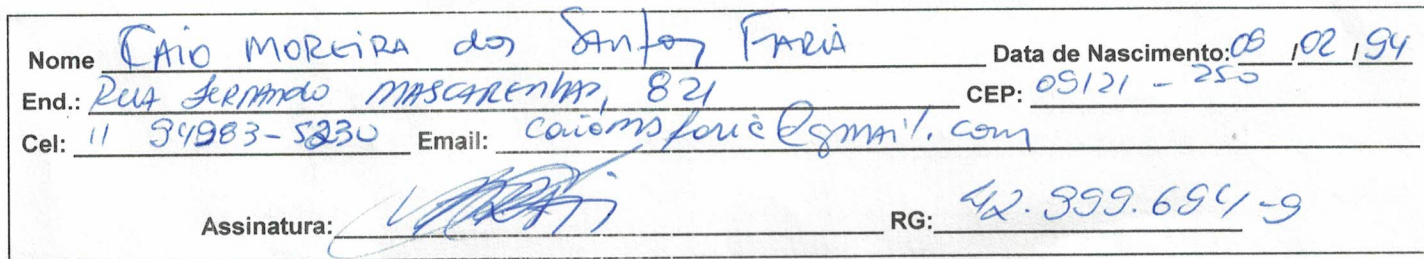 Nome CAIO MOREIRA dos Santos FARIA Data de Nascimento: 09/02/94
End.: RUA FERNANDO MASCARENHAS, 821 CEP: 09121-250
Cel: 11 94983-5230 Email: caiomsfaria@gmail.com
Assinatura: RG: 42.999.694-9